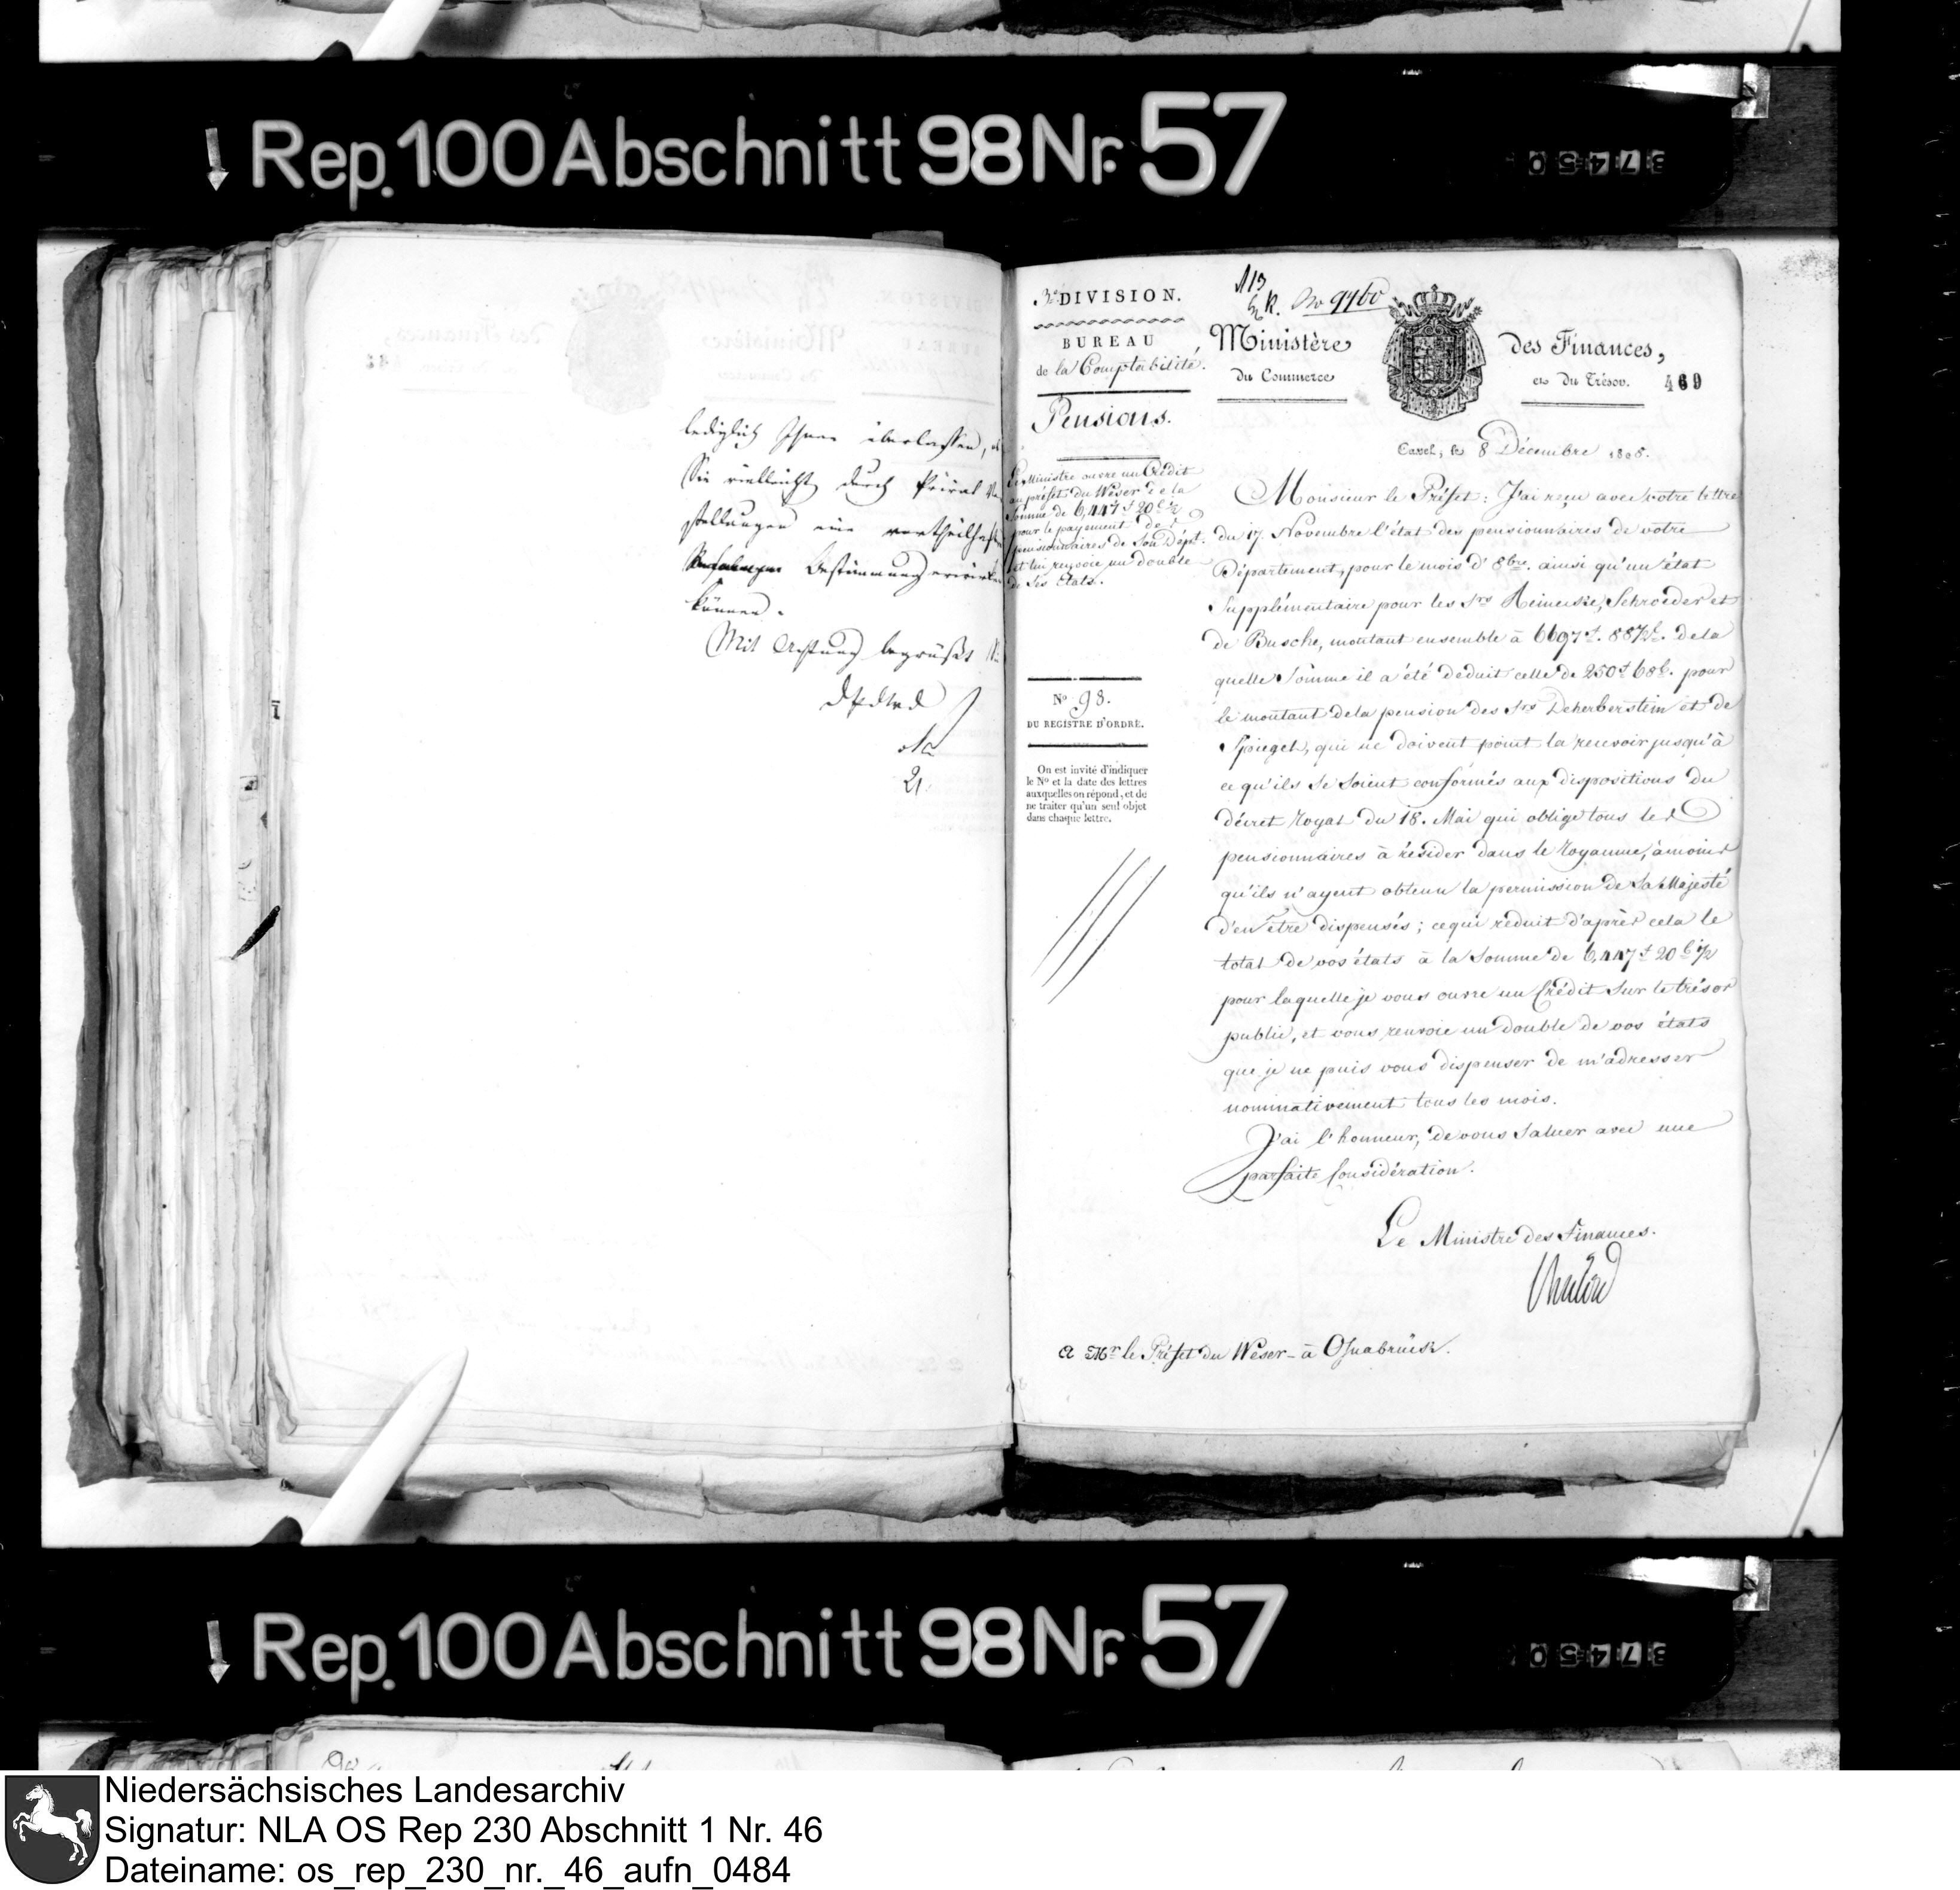 Rep. 100 Abschnitt 98 Nr. 57
37450
lediglich Ihnen überlassen, ob
Sie vielleicht durch Privat Vor
stellungen eine vortheilhafte
Bestimmung erwirken
können.
Mit Achtung begrüßt Sie
3e. DIVISION.
BUREAU
de la Comptabilité.
Pensions.
Le Ministre ouvre un Crédit
au préfet du Weser de la
Somme de 6,447 f 20 c ½
pour le payement des
pensionnaires de Son Dépt.
et lui renvoie un double
de Ses Etats.
No 93.
DU REGISTRE D'ORDRE.
On est invité d'indiquer
le No et la date des lettres
auxquelles on répond, et de
ne traiter qu'un seul objet
dans chaque lettre.
No 9460
Ministère des Finances,
du Commerce et du Trésor.
469
Cassel, le 8 Décembre 1808.
Monsieur le Préfet: J'ai reçu avec votre lettre
du 17. Novembre l'état des pensionnaires de votre
Département, pour le mois d'8bre. ainsi qu'un état
Supplémentaire pour les Srs Reinecke, Schroeder et
de Busche, montant ensemble à 6697 f. 88½ c. de la
quelle Somme il a été déduit celle de 250 f 68 c. pour
le montant de la pension des Srs Deherberstein et de
Spiegel, qui ne doivent point la recevoir jusqu'à
ce qu'ils se soient conformés aux dispositions du
décret royal du 18. Mai qui oblige tous les
pensionnaires à résider dans le royaume, à moins
qu'ils n'ayent obtenu la permission de Sa Majesté
d'en être dispensés; ce qui réduit d'après cela le
total de vos états à la Somme de 6,447 f 20 c ½
pour laquelle je vous ouvre un Crédit sur le trésor
public, et vous renvoie un double de vos états
que je ne puis vous dispenser de m'adresser
nominativement tous les mois.
J'ai l'honneur, de vous Saluer avec une
parfaite Considération.
Le Ministre des Finances.
A Mr le Préfet du Weser - à Osnabrück.
Rep. 100 Abschnitt 98 Nr. 57
37450
Niedersächsisches Landesarchiv
Signatur: NLA OS Rep 230 Abschnitt 1 Nr. 46
Dateiname: os_rep_230_nr._46_aufn_0484